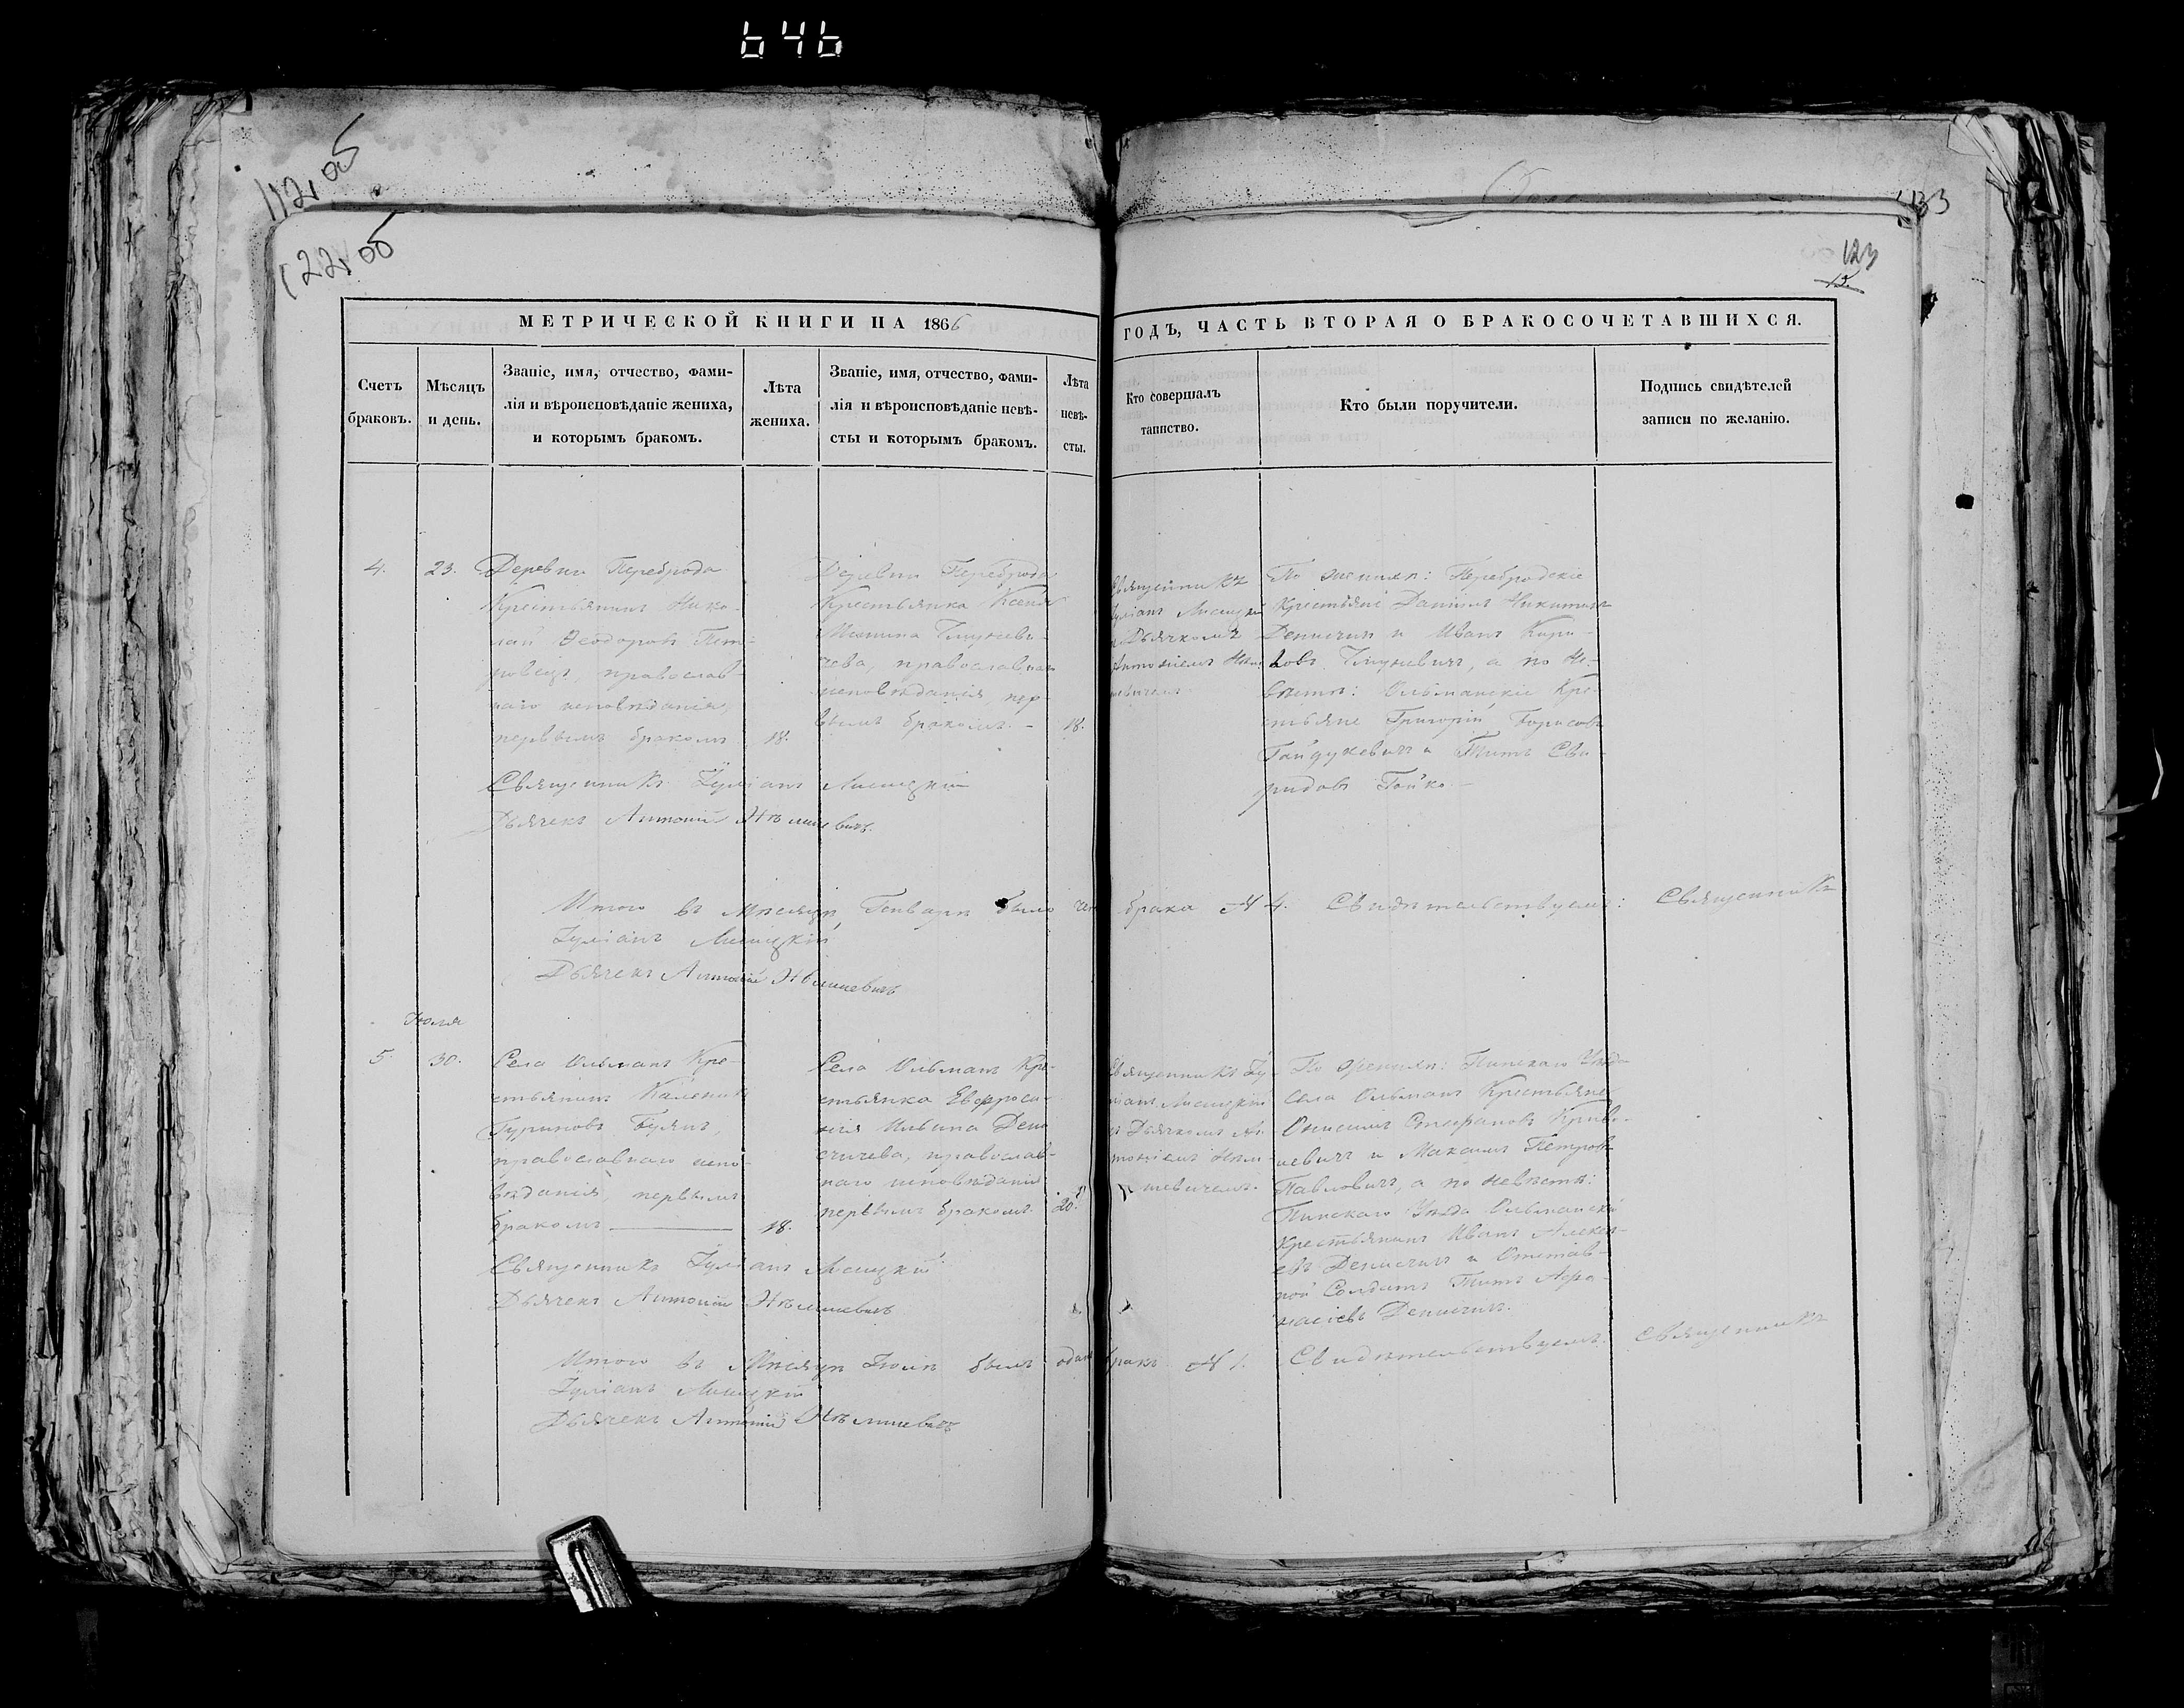 646
112, об
133
122, об
123
12
МЕТРИЧЕСКОЙ КНИГИ НА 1866
ГОДЪ, ЧАСТЬ ВТОРАЯ О БРАКОСОЧЕТАВШИХСЯ.
Счетъ
браковъ.
Мѣсяцъ
и день.
Званіе, имя, отчество, фами-
лія и вѣроисповѣданіе жениха,
и которымъ бракомъ.
Лѣта
жениха.
Званіе, имя, отчество, фами-
лія и вѣроисповѣданіе невѣ-
сты и которымъ бракомъ.
Лѣта
невѣ-
сты.
Кто совершалъ
таинство.
Кто были поручители.
Подпись свидѣтелей
записи по желанію.
4.
23.
Деревни Переброда
Крестьянинъ Нико-
лай Ѳеодоровъ Пет-
ровецъ, православ-
наго исповѣданія,
первымъ бракомъ
18.
Деревни Переброда
Крестьянка Ксенія
чева, православнаго
исповѣданія, пер-
вымъ бракомъ. —
18.
Священникъ
Іуліанъ Лисицкій
съ Дьячкомъ
Антоніемъ Нѣм-
шевичемъ
По женихѣ: Перебродскіе
Крестьяне Даніилъ Никитинъ
Денисчичъ и Иванъ Кири-
ловъ, а по Не-
вѣстѣ: Ольманскіе Кре-
стьяне Григорій Борисовъ
Гайдукевичъ и Титъ Сви-
ридовъ Гойко. —
Священникъ Іуліанъ Лисицкій
Дьячекъ Антоній Нѣмшевичъ.
Итого въ Мѣсяцѣ Генварѣ было че
брака № 4. Свидѣтельствуемъ: Священникъ
Іуліанъ Лисицкій
Дьячекъ Антоній Нѣмшевичъ
Іюля
5.
30.
Села Ольманъ Кре-
стьянинъ Каленикъ
Гуриновъ
православнаго испо-
вѣданія, первымъ
бракомъ —
18.
Села Ольманъ Кре-
стьянка Евфроси-
нія Ильина Дени
счичева, православ-
наго исповѣданія
первымъ бракомъ.
20.
Священникъ Іу-
ліанъ Лисицкій
съ Дьячкомъ Ан-
тоніемъ Нѣм-
шевичемъ.
По женихѣ: Пинскаго Уѣзда
села Ольманъ Крестьяне
Онисимъ Стефановъ
и Максимъ Петровъ
Павловичъ, а по невѣстѣ:
Пинскаго Уѣзда Ольманскій
Крестьянинъ Иванъ Алексѣ-
евъ Денисчичъ и Отстав-
ной Солдатъ Титъ Афа-
насіевъ Денисчичъ.
Священникъ Іуліанъ Лисицкій
Дьячекъ Антоній Нѣмшевичъ
Итого въ Мѣсяцѣ Іюлѣ былъ одинъ
бракъ № 1. Свидѣтельствуемъ: Священникъ
Іуліанъ Лисицкій
Дьячекъ Антоній Нѣмшевичъ